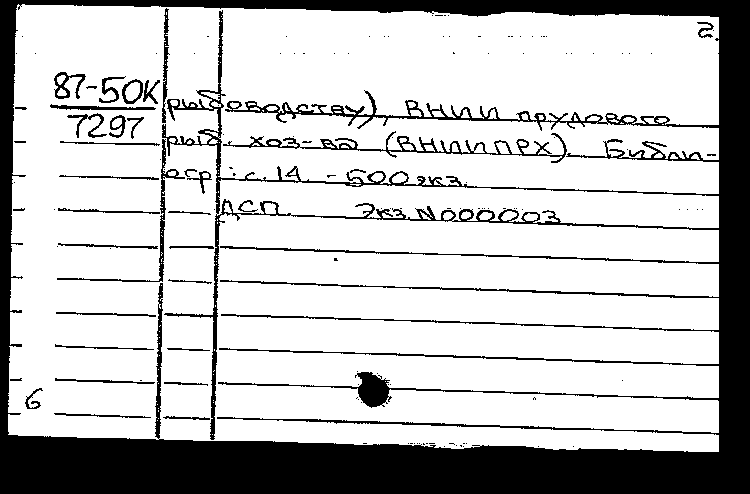 2.
87-50К
7297
рыбоводству), ВНИИ прудового
рыб. хоз-ва (ВНИИПРХ). Библи-
огр : с. 14. - 500 экз.
ДСП. Экз. N000003
6